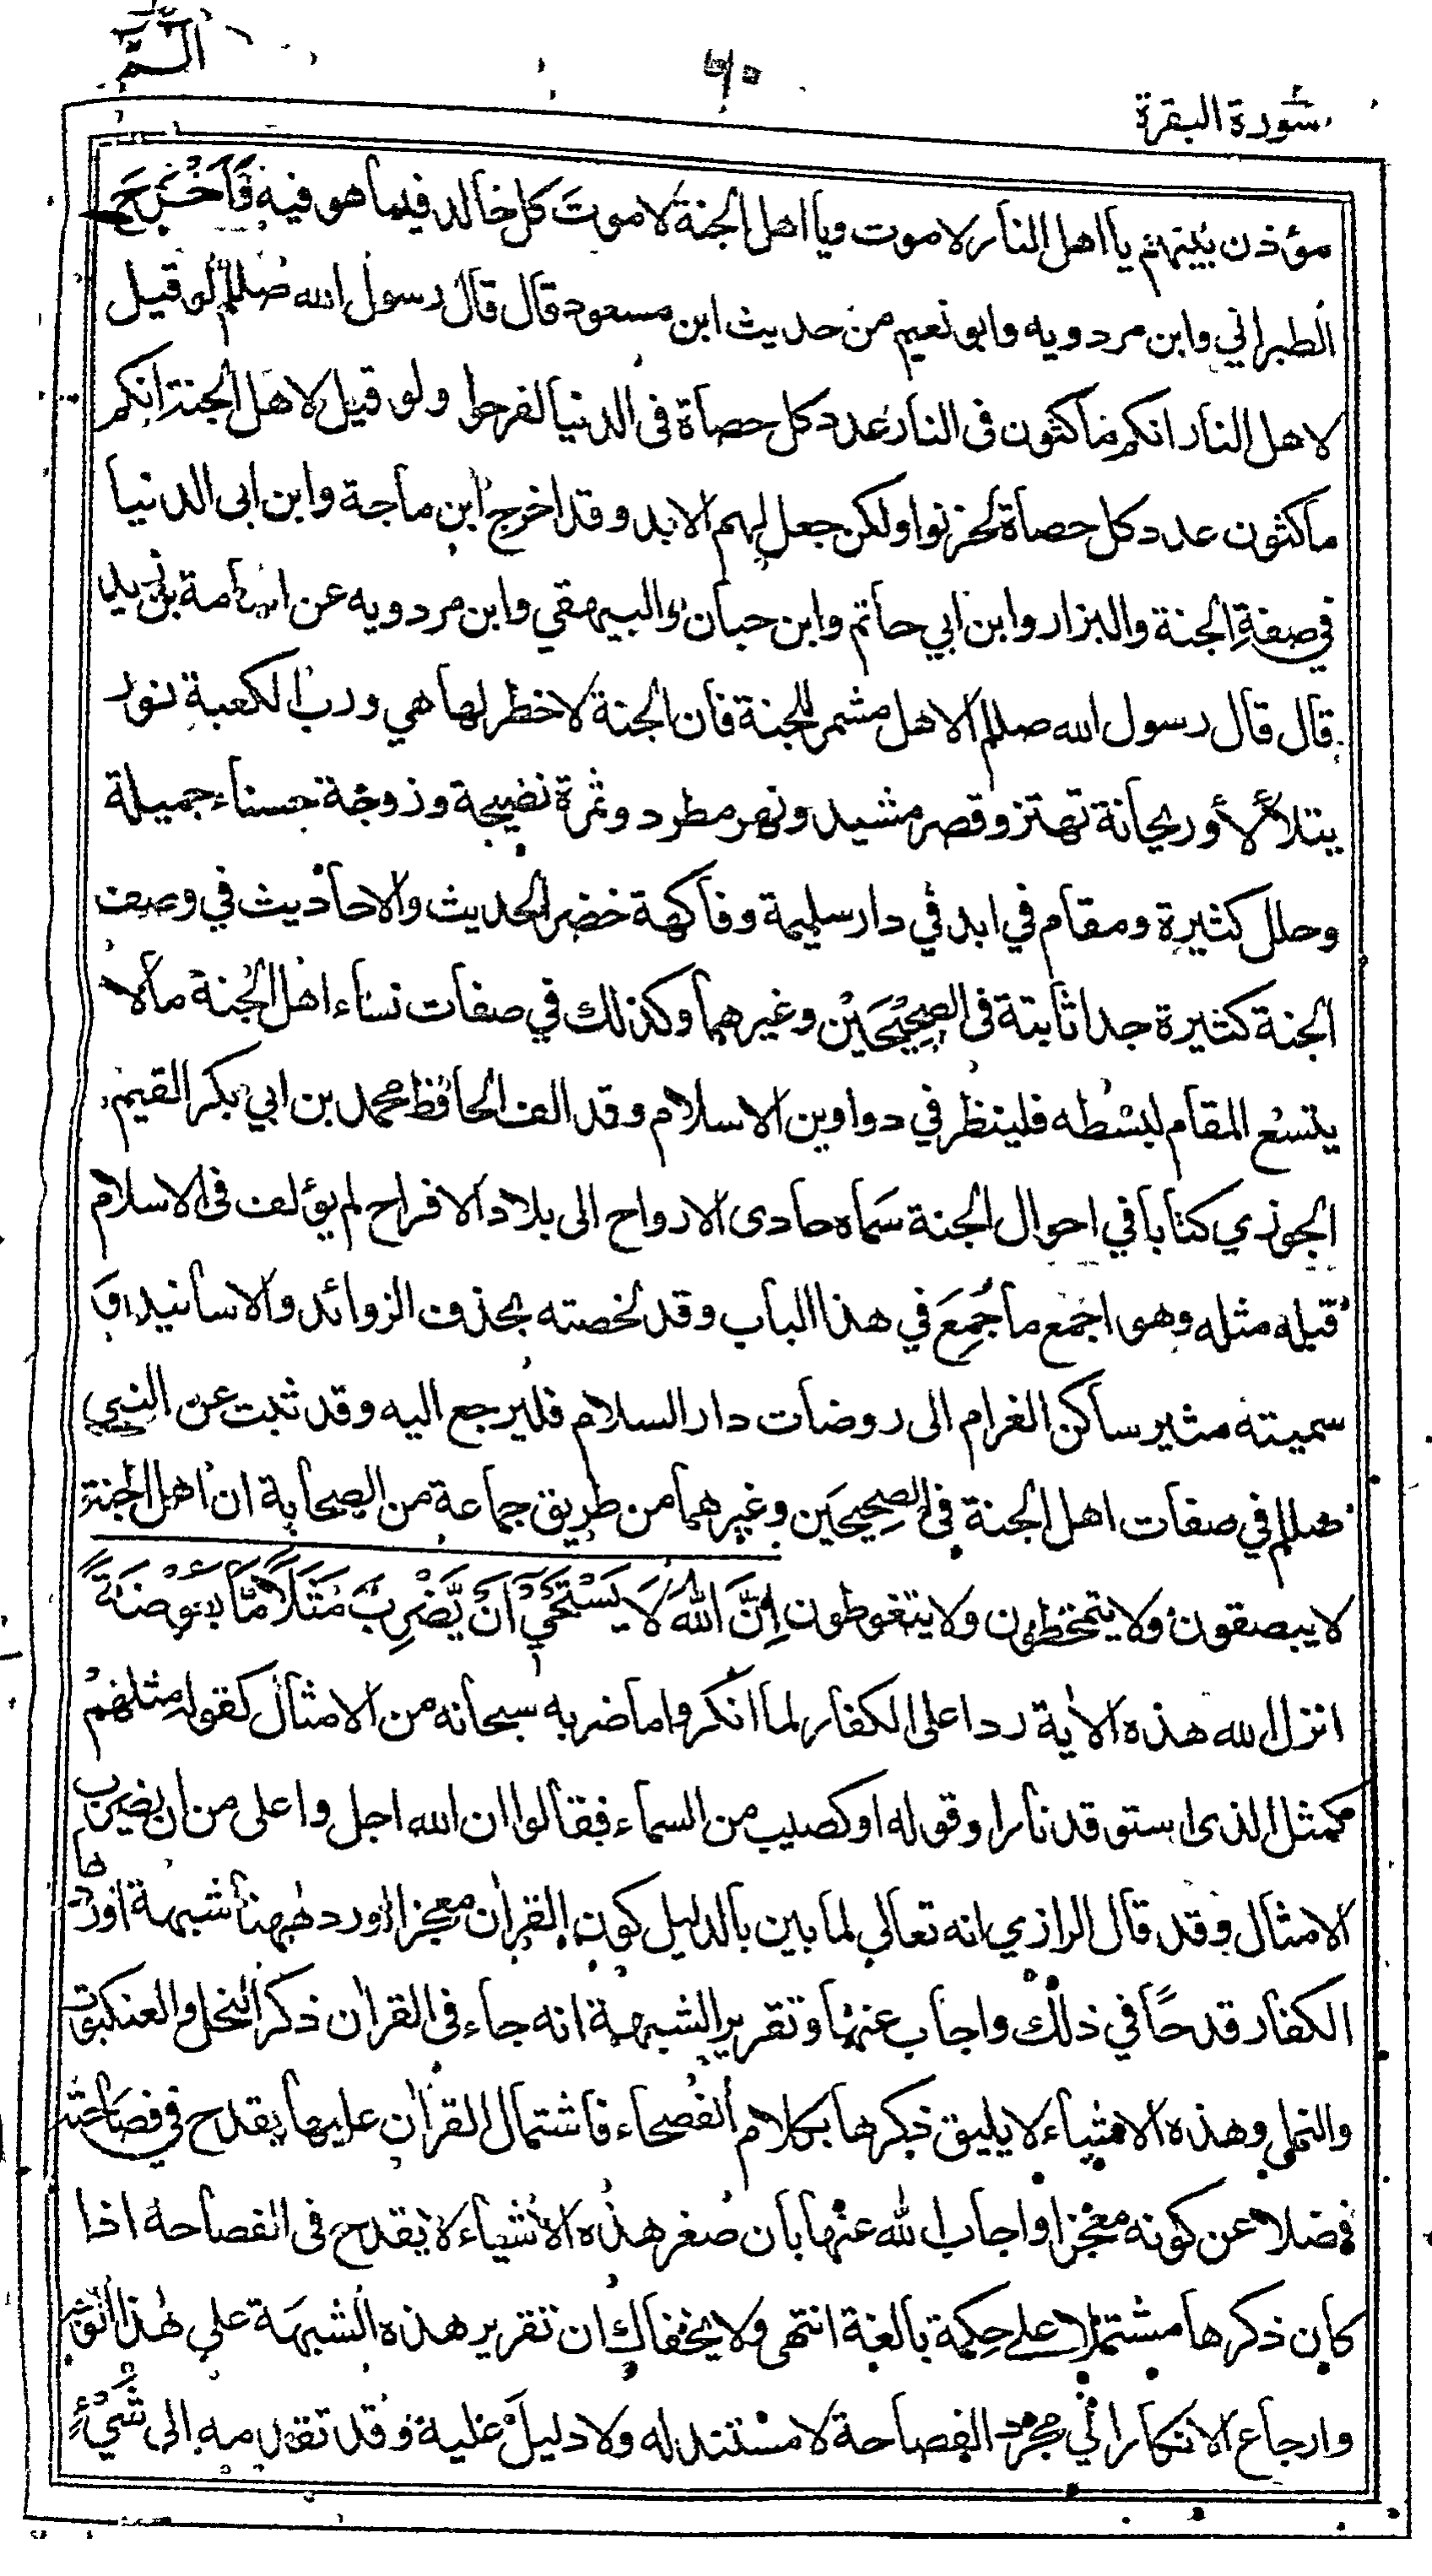 الٓمّٓ
٦٠
سورة البقرة
مؤذن بينهم يا اهل النار لا موت ويا اهل الجنة لا موت كل خالد فيما هو فيه وَاَخْرَجَ
الطبراني وابن مردويه وابو نعيم من حديث ابن مسعود قال قال رسول الله صللم لو قيل
لاهل النار انكم ماكثون فى النار عدد كل حصاة فى الدنيا لفرحوا ولو قيل لاهل الجنة انكم
ماكثون عدد كل حصاة لحزنوا ولكن جعل لهم الابد وقد اخرج ابن ماجة وابن ابى الدنيا
في صفة الجنة والبزار وابن ابي حاتم وابن حبان والبيهقي وابن مردويه عن اسامة بن زيد
قال قال رسول الله صللم الا هل مشمر للجنة فان الجنة لا خطر لها هي ورب الكعبة نور
يتلألأ وريحانة تهتز وقصر مشيد ونهر مطرد وثمرة نضيجة وزوجة حسناء جميلة
وحلل كثيرة ومقام في ابد في دار سليمة وفاكهة خضر الحديث والاحاديث في وصف
الجنة كثيرة جدا ثابتة فى الصحِيْحَيْن وغيرهما وكذلك في صفات نساء اهل الجنة ما لا
يتسع المقام لبسطه فلينظر في دواوين الاسلام وقد الف الحافظ محمد بن ابي بكر القيم
الجوزي كتابا في احوال الجنة سَماه حادى الارواح الى بلاد الافراح لم يؤلف فى الاسلام
قبله مثله وهو اجمع ما جُمِعَ في هذا الباب وقد لخصته بحذف الزوائد والاسانيد وَ
سميته مثير ساكن الغرام الى روضات دار السلام فليرجع اليه وقد ثبت عن النبي
صللم في صفات اهل الجنة فى الصحِيحَين وغيرهما من طريق جماعة من الصحابة ان اهل الجنة
لا يبصقون ولا يتمخطون ولا يتغوطون اِنَّ اللّٰهَ لَا يَسْتَحْيٖٓ اَنْ يَّضْرِبَ مَثَلًا مَّا بَعُوْضَةً
انزل الله هذه الاٰية ردا على الكفار لما انكروا ما ضربه سبحانه من الامثال كقوله مثلهم
كمثل الذى استوقد نارا وقوله او كصيب من السماء فقالوا ان الله اجل واعلى من ان يضرب
الامثال وقد قال الرازي انه تعالى لما بين بالدليل كون القراٰن معجزا اورد ههنا شبهة اوردها
الكفار قدحًا في ذلك واجاب عنها وتقرير الشبهة انه جاء فى القراٰن ذكر النحل والعنكبوت
والنمل وهذه الاشياء لا يليق ذكرها بكلام الفصحاء فاشتمال القراٰن عليها يقدح في فصاحته
فضلا عن كونه معجزا واجاب الله عنها بان صغر هذه الاشياء لا يقدح فى الفصاحة اذا
كان ذكرها مشتملا على حكمة بالغة انتهى ولا يخفاك ان تقرير هذه الشبهة على هذا الوجه
وارجاع الانكار الى مجرد الفصاحة لا مستند له ولا دليل عليه وقد تقدمه الى شَيْءٍ